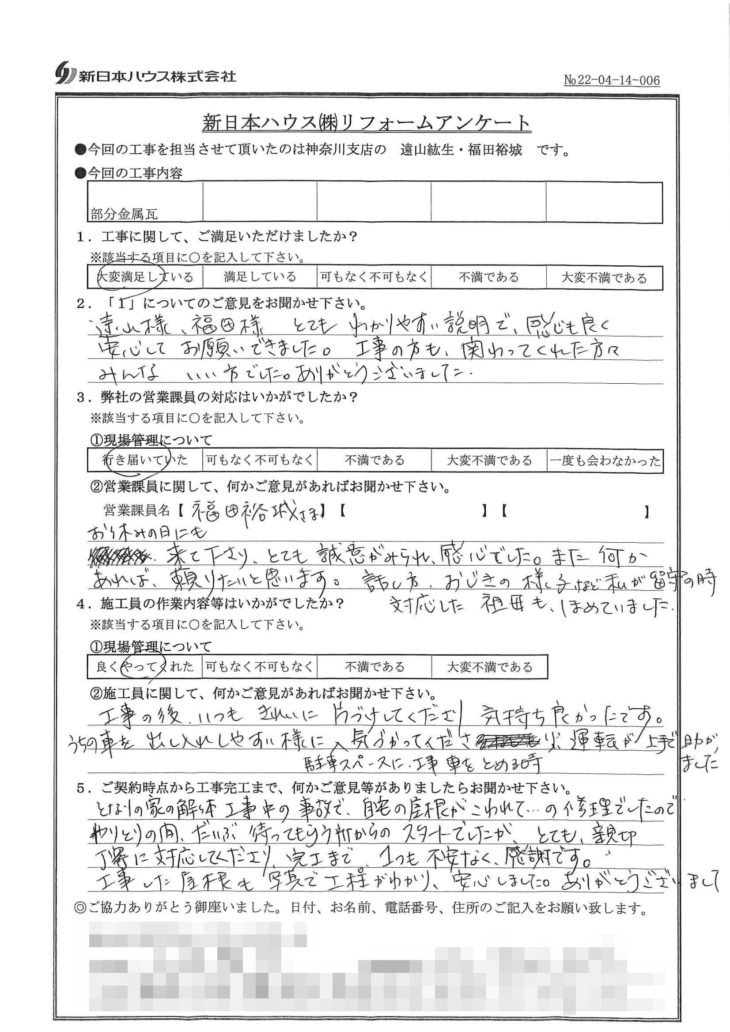 新日本ハウス株式会社
№22-04-14-006
新日本ハウス㈱リフォームアンケート
●今回の工事を担当させて頂いたのは神奈川支店の 遠山紘生・福田裕城 です。
●今回の工事内容
部分金属瓦
1．工事に関して、ご満足いただけましたか？
※該当する項目に○を記入して下さい。
大変満足している 満足している 可もなく不可もなく 不満である 大変不満である
2．「1」についてのご意見をお聞かせ下さい。
遠山様、福田様 とても わかりやすい説明で、感じも良く
安心して お願いできました。 工事の方も、関わってくれた方々
みんな いい方でした。ありがとうございました.
3．弊社の営業課員の対応はいかがでしたか？
※該当する項目に○を記入して下さい。
①現場管理について
行き届いていた 可もなく不可もなく 不満である 大変不満である 一度も会わなかった
②営業課員に関して、何かご意見があればお聞かせ下さい。
営業課員名【 福田裕城さま 】【 】【 】
お休みの日にも
来て下さり、とても 誠意がみられ、感心でした。また 何か
あれば、頼りたいと思います。 話し方、おじぎの 様子など 私が 留守の時
対応した 祖母も、ほめていました.
4．施工員の作業内容等はいかがでしたか？
※該当する項目に○を記入して下さい。
①現場管理について
良くやってくれた 可もなく不可もなく 不満である 大変不満である
②施工員に関して、何かご意見があればお聞かせ下さい。
工事の後、いつも きれいに 片づけしてくださり 気持ち良かったです。
うちの車を 出し入れしやすい様に 気づかってくださり 運転が上手で 助かり
駐車スペースに工事車をとめる時
ました
5．ご契約時点から工事完工まで、何かご意見等がありましたらお聞かせ下さい。
となりの家の解体工事中の事故で、自宅の屋根がこわれて…の修理でしたので
やりとりの間、だいぶ 待ってもらう所からの スタートでしたが、とても、親切
丁寧に対応してくださり、完工まで、1つも 不安なく、感謝です。
工事した屋根も 写真で工程がわかり、安心しました。ありがとうございまして
◎ご協力ありがとう御座いました。日付、お名前、電話番号、住所のご記入をお願い致します。